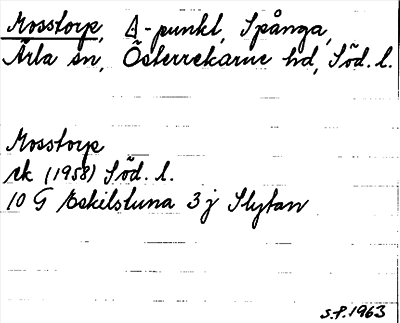 Mosstorp, Δ-punkt, Spånga,
Ärla sn, Österrekarne hd, Söd. l.
Mosstorp
ek (1958) Söd. l.
10 G Eskilstuna 3 j Slytan
S.P. 1963